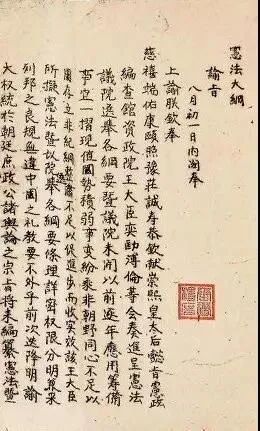 憲法大綱
諭旨
八月初一日內閣奉
上諭朕欽奉
慈禧端佑康頤昭豫莊誠壽恭欽獻崇熙皇太后懿旨憲政
編查館資政院王大臣奕劻溥倫等會奏進呈憲法
議院選舉各綱要暨議院未開以前逐年應用籌備
事宜一摺現值國勢積弱事變紛乘非朝野同心不足以
圖存立非紀綱整肅不足以促進步而收實效該王大臣
所擬憲法暨議院選舉各綱要條理詳密權限分明兼采
列邦之良規無違中國之禮教要不外乎前次迭降明諭
大權統於朝廷庶政公諸輿論之宗旨將來編纂憲法暨